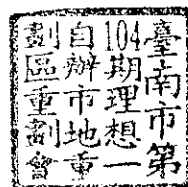 臺南市第
104期理想一
自辦市地重
劃區重劃會